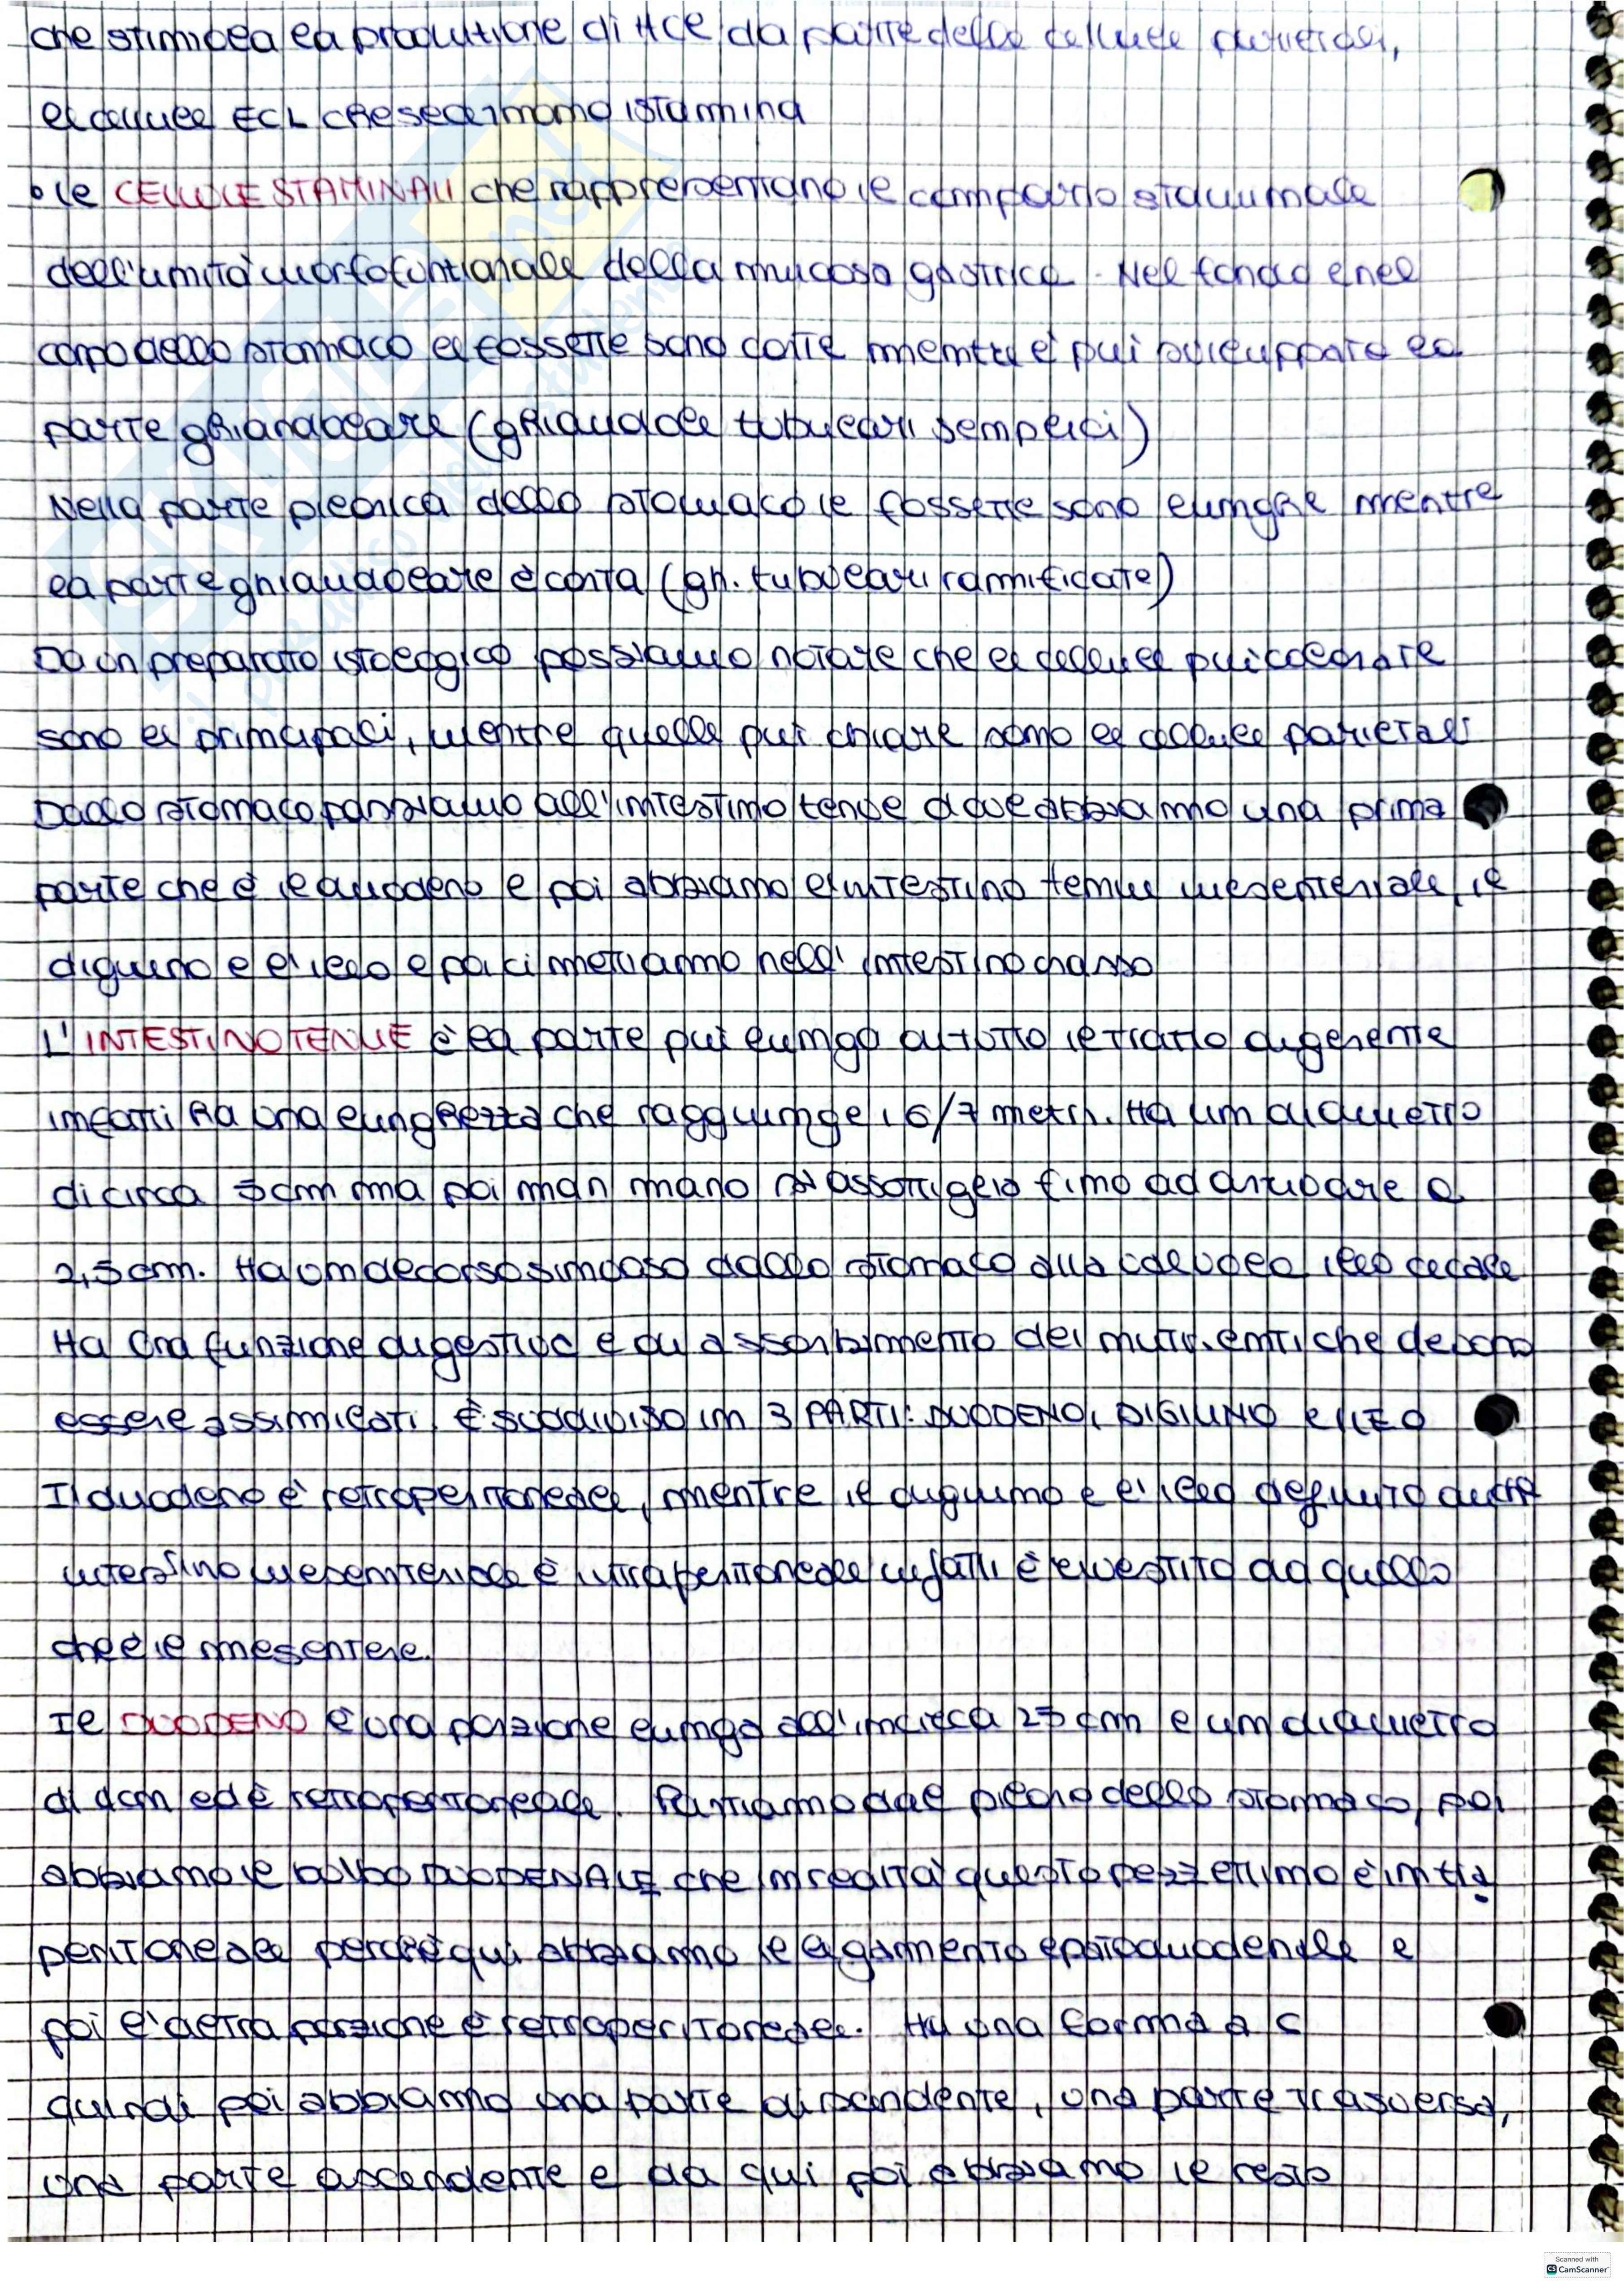 che stimola la produzione di HCl da parte delle cellule parietali,
le cellule ECL che secernono istamina
• le CELLULE STAMINALI che rappresentano il comparto staminale
dell'unità morfofunzionale della mucosa gastrica. Nel fondo e nel
corpo dello stomaco le fossette sono corte mentre è più sviluppata la
parte ghiandolare (ghiandole tubulari semplici)
Nella parte pilorica dello stomaco le fossette sono lunghe mentre
la parte ghiandolare è corta (gh. tubulari ramificate)
Da un preparato istologico possiamo notare che le cellule più colorate
sono le principali, mentre quelle più chiare sono le cellule parietali
Dallo stomaco passiamo all'intestino tenue dove abbiamo una prima
parte che è il duodeno e poi abbiamo l'intestino tenue mesenteriale, il
digiuno e l'ileo e poi ci mettiamo nell'intestino crasso
L'INTESTINO TENUE è la parte più lunga di tutto il tratto digerente
infatti ha una lunghezza che raggiunge i 6/7 metri. Ha un diametro
di circa 5cm ma poi man mano si assottiglia fino ad arrivare a
2,5 cm. Ha un decorso sinuoso dallo stomaco alla valvola ileo cecale
Ha una funzione digestiva e di assorbimento dei nutrienti che devono
essere assimilati. È suddiviso in 3 PARTI: DUODENO, DIGIUNO e ILEO
Il duodeno è retroperitoneale, mentre il digiuno e l'ileo definito anche
intestino mesenteriale è intraperitoneale infatti è rivestito da quello
che è il mesentere.
Il DUODENO è una porzione lunga all'incirca 25 cm e un diametro
di 4cm ed è retroperitoneale. Partiamo dal piloro dello stomaco, poi
abbiamo il bulbo DUODENALE che in realtà questo pezzettino è intra
peritoneale perché qui abbiamo il legamento epatoduodenale e
poi l'altra porzione è retroperitoneale. Ha una forma a C
quindi poi abbiamo una parte discendente, una parte trasversa,
una parte ascendente e da qui poi abbiamo il resto
Scanned with
CS CamScanner